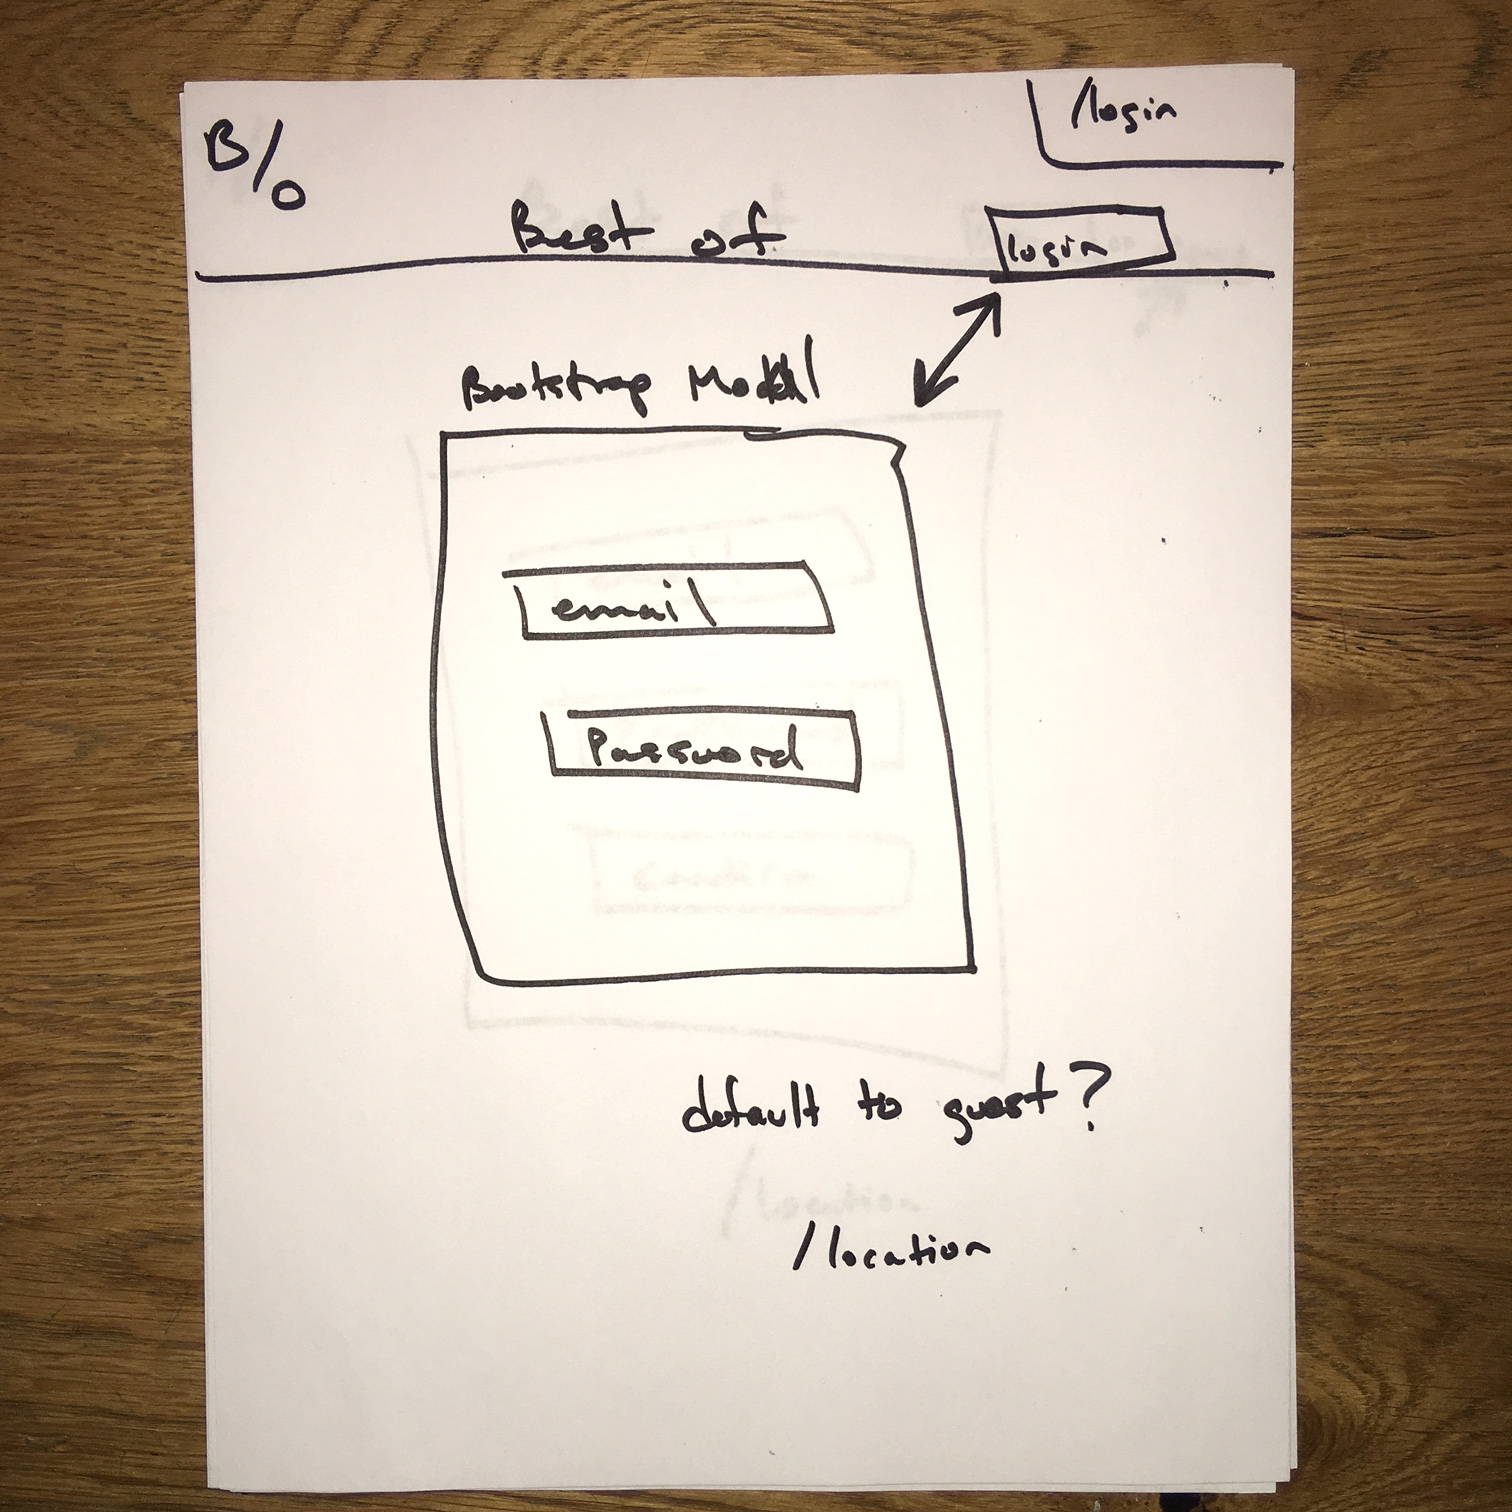 /login
B/o
Best of
login
Bootstrap Modal
email
Password
default to guest?
/location
/location